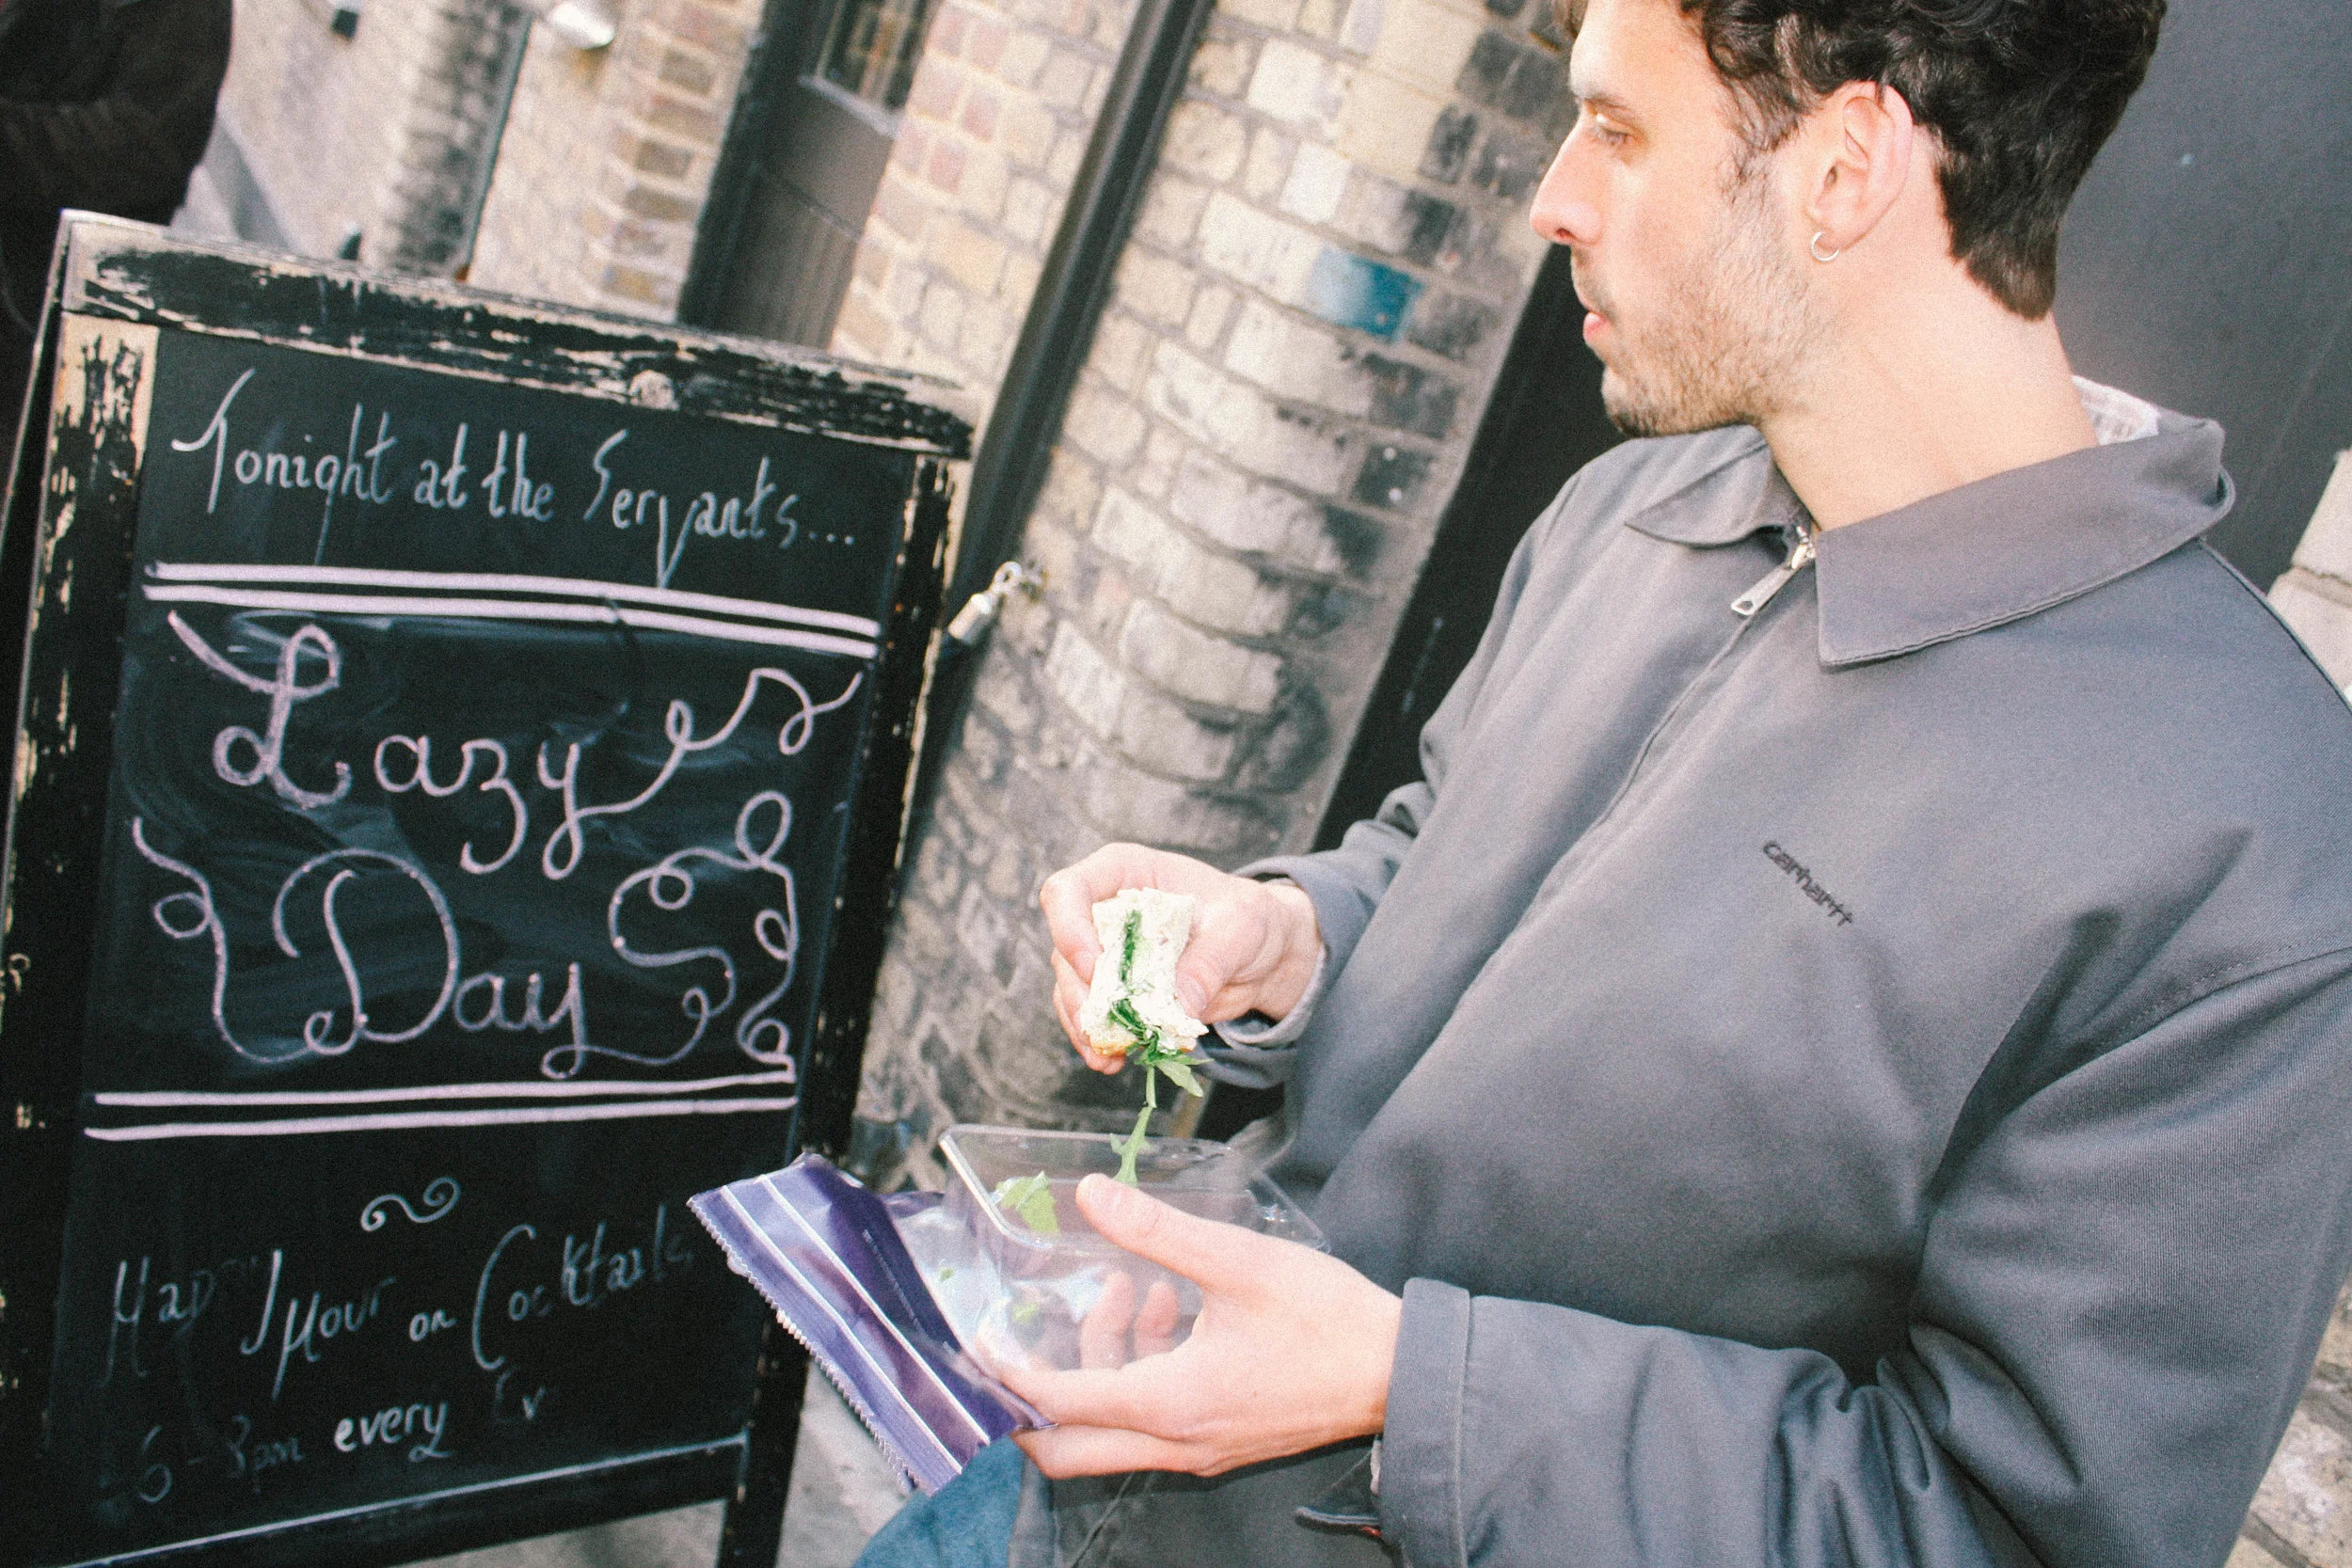 Tonight at the Servants...
Lazy
Days
Happy Hour on Cocktails
6-8pm every Ev
carhartt